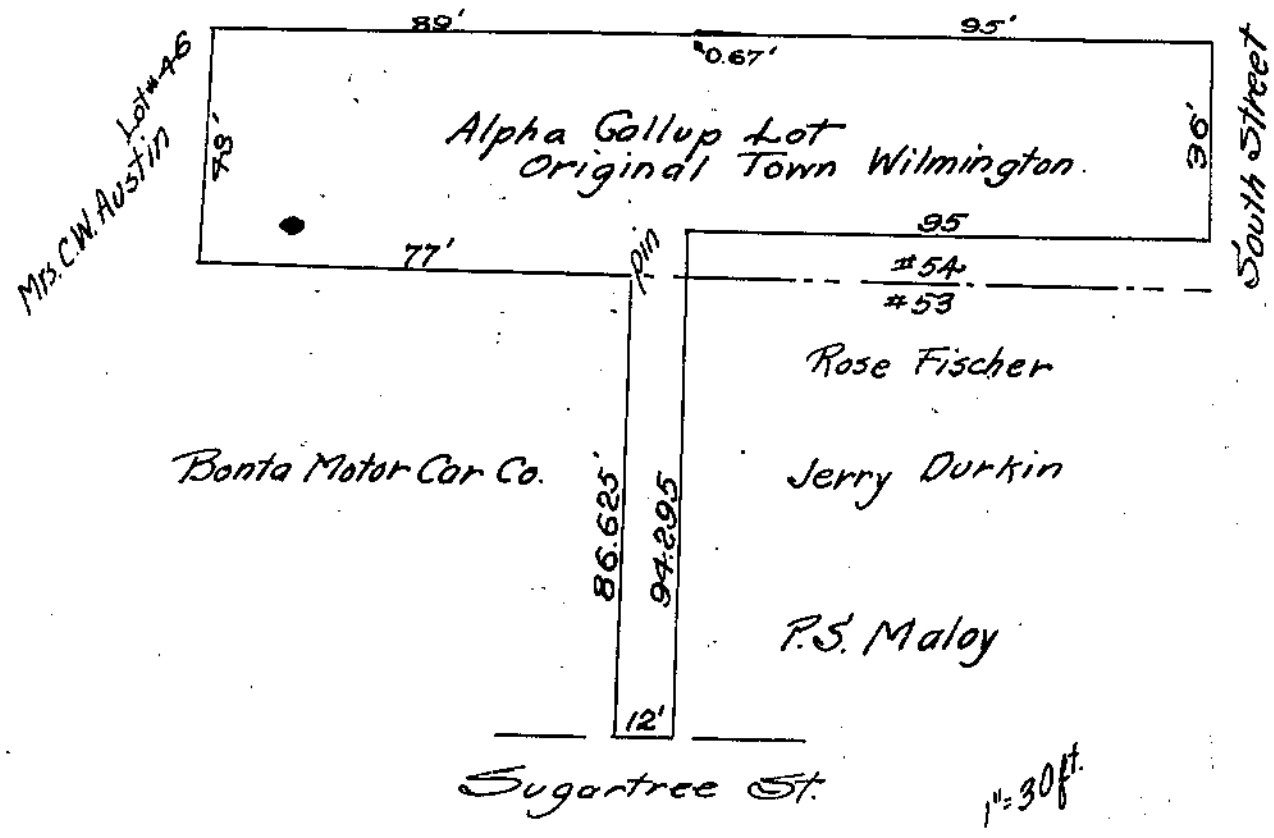 89'
95'
0.67'
Lot #46
Mrs. C.W. Austin
48'
Alpha Gallup Lot
Original Town Wilmington.
36'
South Street
77'
pin
95
#54
#53
Rose Fischer
Bonta Motor Car Co.
Jerry Durkin
86.625'
94.295
P.S. Maloy
12'
Sugartree St.
1"=30ft.